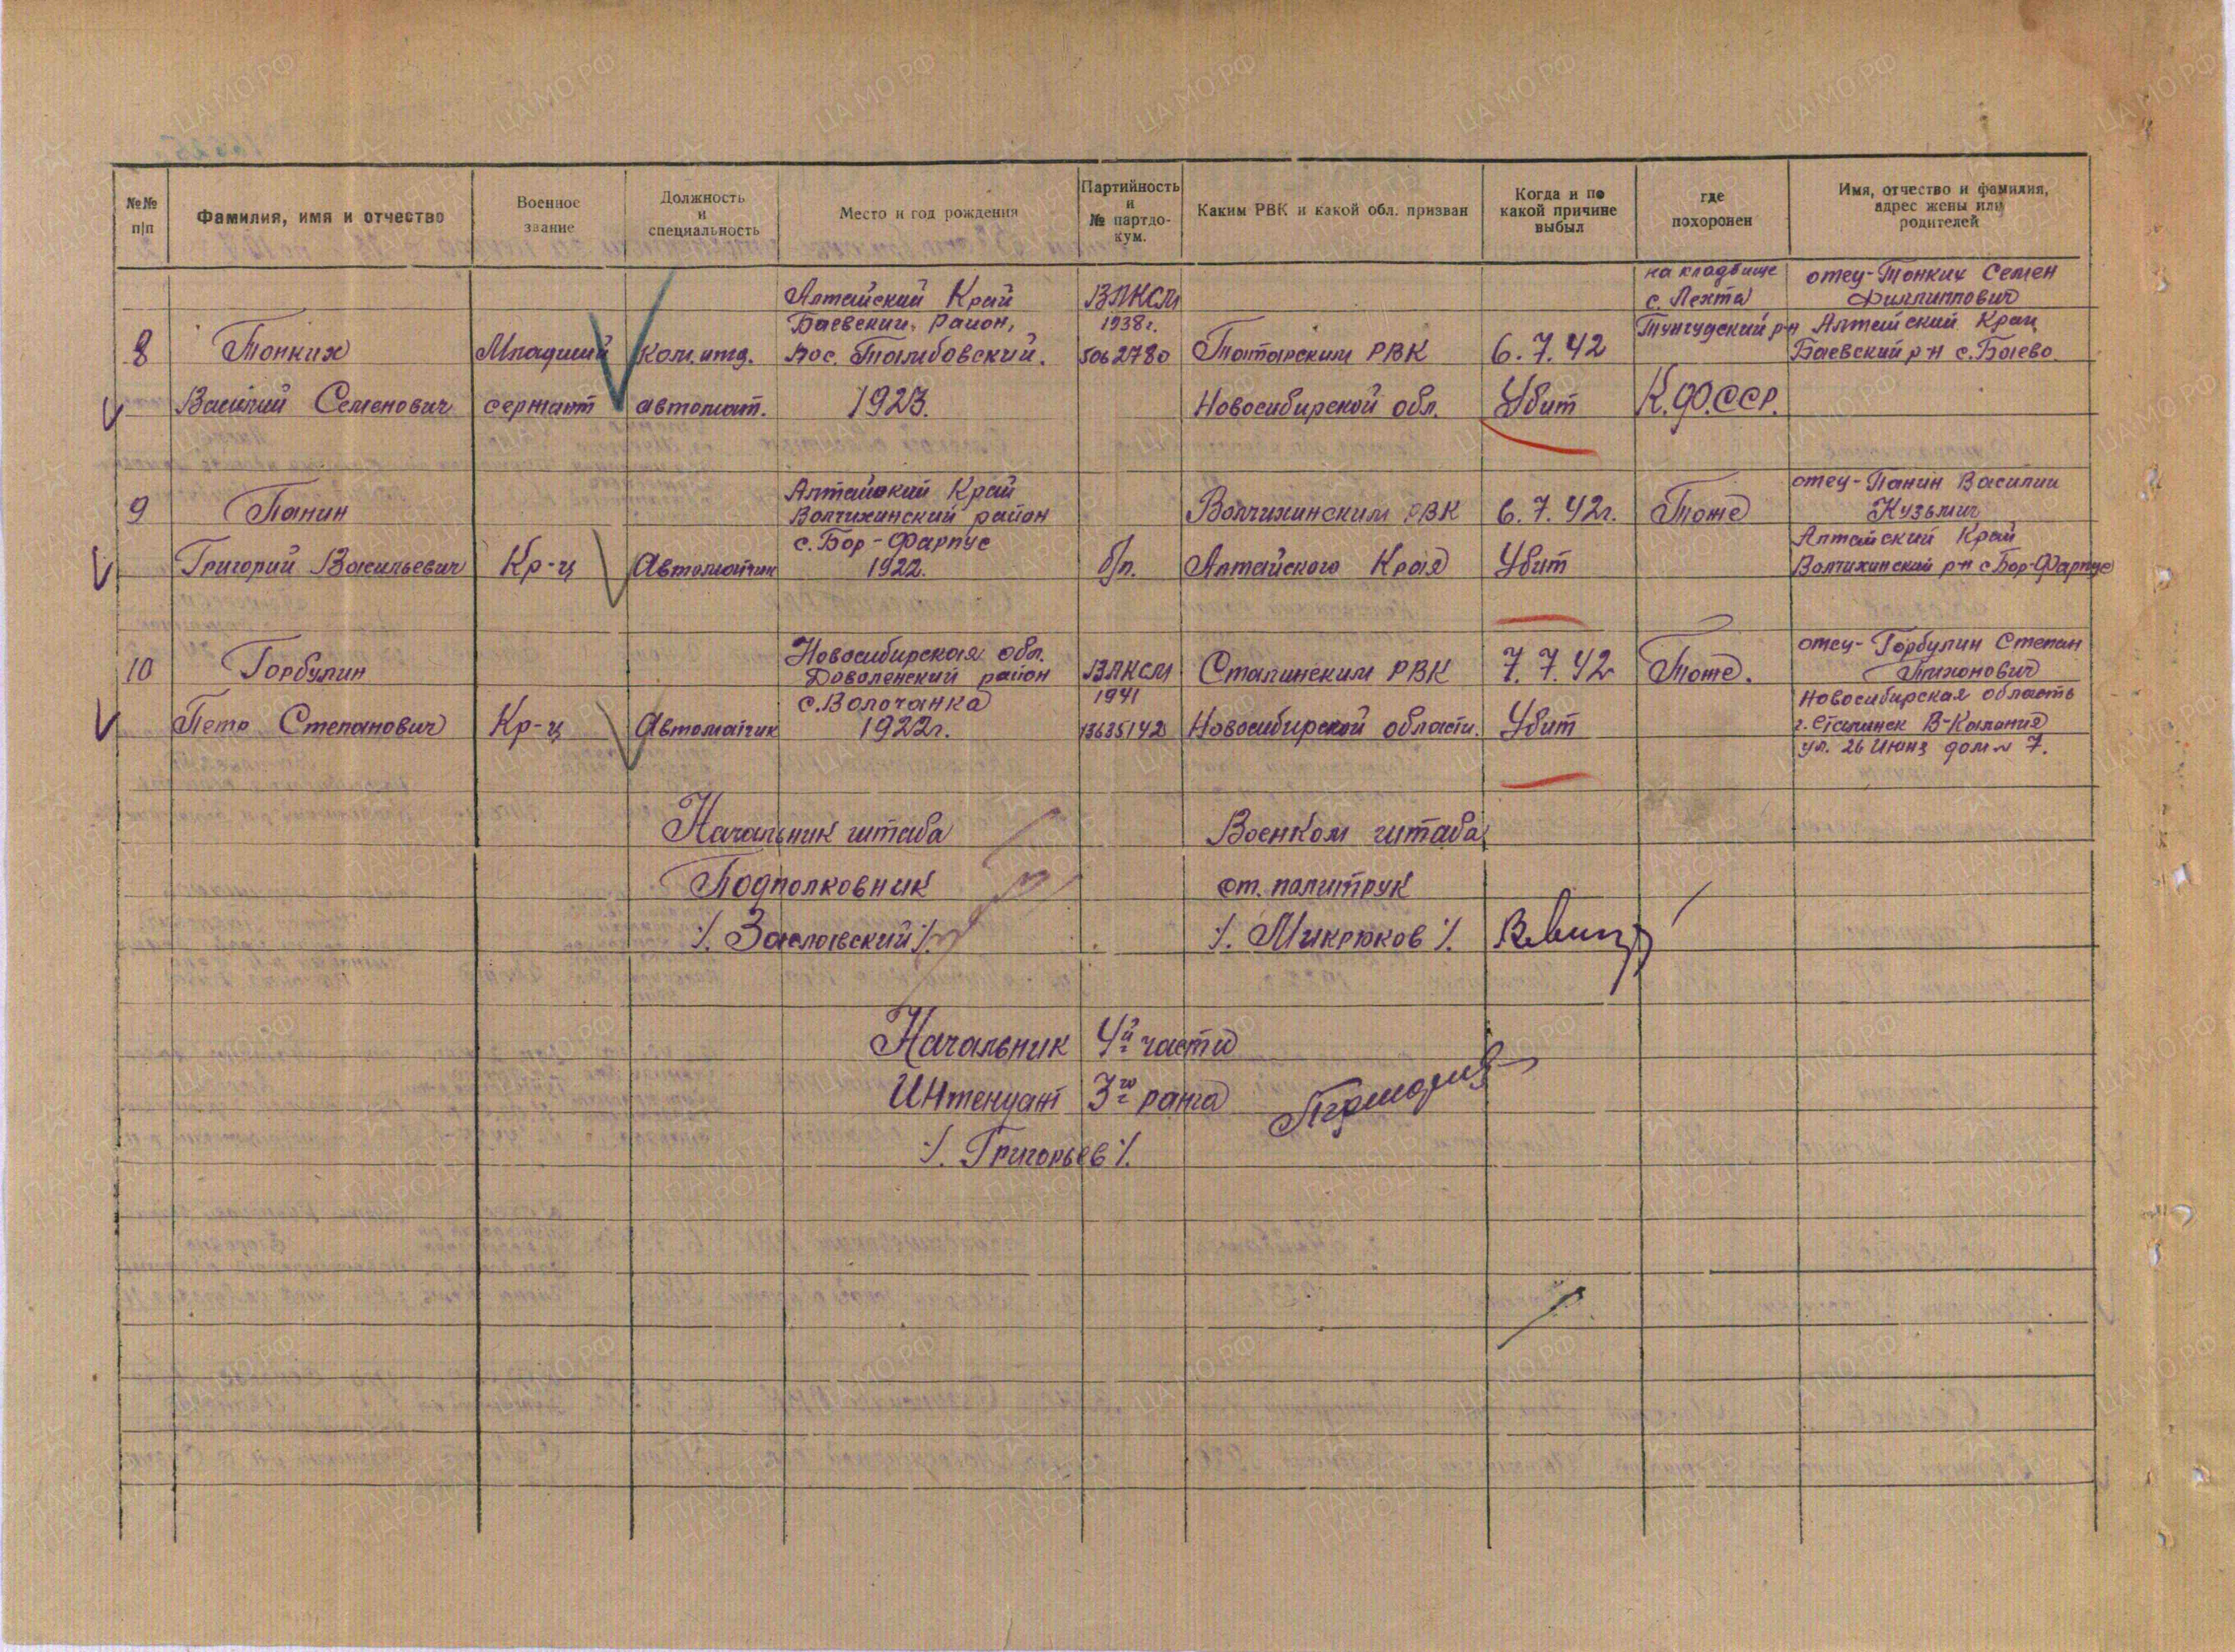 №№ п/п
Фамилия, имя и отчество
Военное звание
Должность и специальность
Место и год рождения
Партийность и № партдо-кум.
Каким РВК и какой обл. призван
Когда и по какой причине выбыл
где похоронен
Имя, отчество и фамилия, адрес жены или родителей
8
Тонких
Василий Семенович
Младший
сержант
Ком. отд.
автомат.
Алтайский Край
Баевский, район,
пос. Тамбовский.
1923.
ВЛКСМ
1938г.
5062780
Татарским РВК
Новосибирской обл.
6.7.42
Убит
на кладбище
с. Лехта
Тунгудский р-н
К.ФССР.
отец-Тонких Семен
Филлиппович
Алтайский Край
Баевский р-н с. Баево.
9
Панин
Григорий Васильевич
Кр-ц
Автоматчик
Алтайский Край
Волчихинский район
с. Бор-Фарпус
1922.
б/п.
Волчихинским РВК
Алтайского Края
6.7.42г.
Убит
Тоже
отец-Панин Василий
Кузьмич
Алтайский Край
Волчихинский р-н с Бор-Фарпус
10
Горбулин
Петр Степанович
Кр-ц
Автоматчик
Новосибирская обл.
Доволенский район
с. Волочанка
1922г.
ВЛКСМ
1941
13635142
Сталинским РВК
Новосибирской области.
7.7.42
Убит
Тоже.
отец-Горбулин Степан
Новосибирская область
г. Сталинск В-Калания
ул. 26 Июня дом № 7.
Начальник штаба
Подполковник
/. Заславский /.
Военком штаба
ст. политрук
/. Микрюков /.
Начальник 4й части
Интендант 3го ранга
/. Григорьев /.
ЦА МО РФ
ПАМЯТЬ НАРОДА